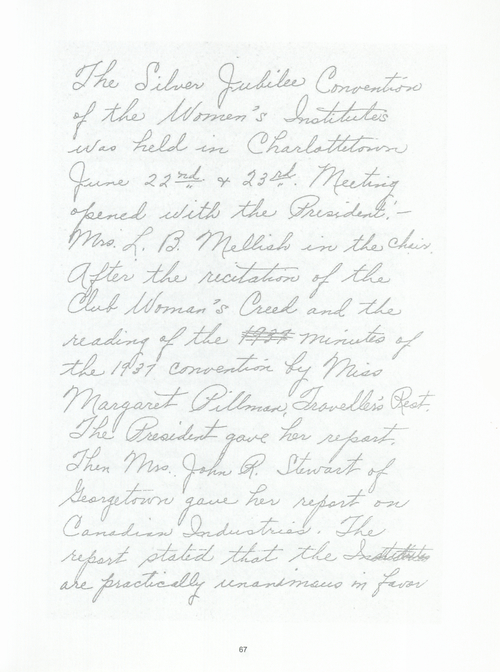 The Silver Jubilee Convention
of the Women's Institutes
was held in Charlottetown
June 22nd & 23rd. Meeting
opened with the President,-
Mrs. L. B. Mellish in the chair.
After the recitation of the
Club Woman's Creed and the
reading of the 1937 minutes of
the 1937 convention by Miss
Margaret Pillman, Traveller's Rest.
The President gave her report.
Then Mrs. John R. Stewart of
Georgetown gave her report on
Canadian Industries. The
report stated that the Institutes
are practically unanimous in favor
67